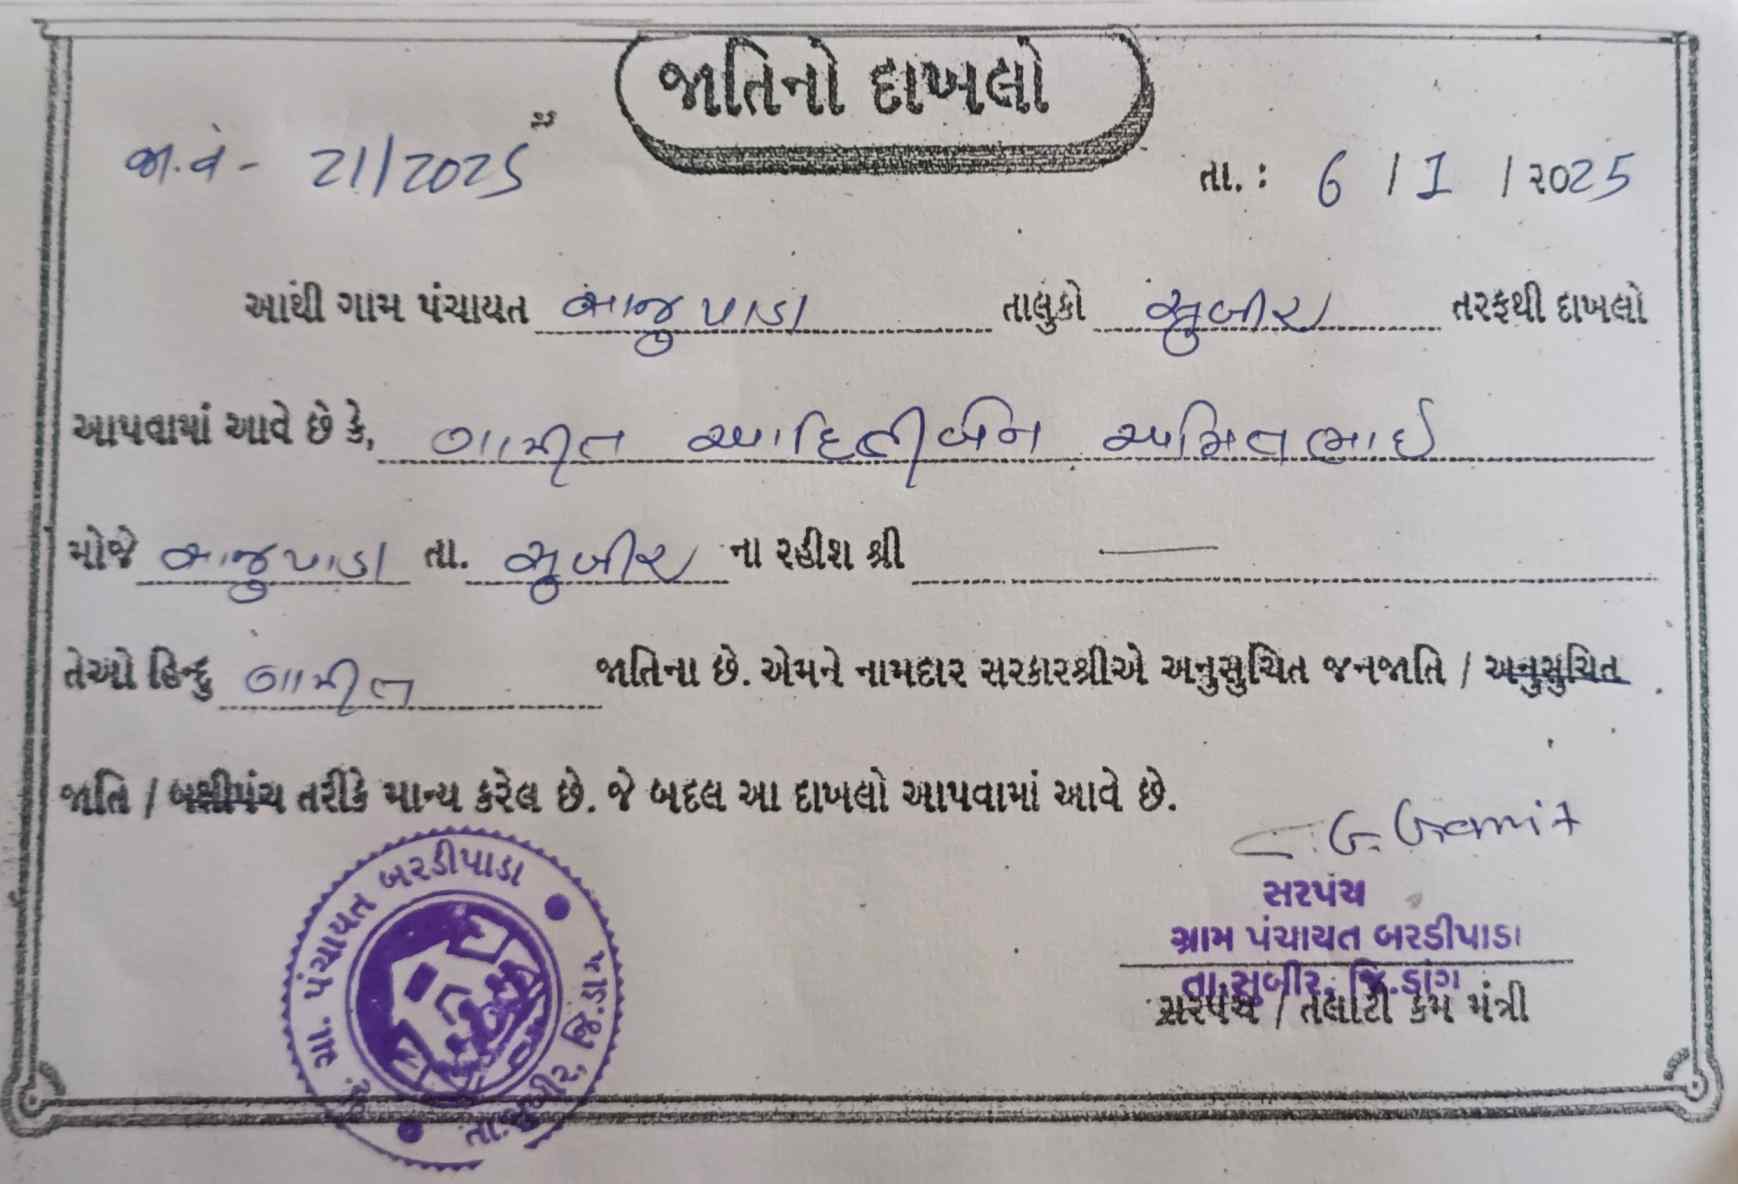 જાતિનો દાખલો
જા.વ - 21/2025
તા. : 6 / 1 / ૨૦25
આથી ગામ પંચાયત આજુપાડા તાલુકો સુબીર તરફથી દાખલો
આપવામાં આવે છે કે, ગામીત આદિતીબેન અમિતભાઈ
મોજે આજુપાડા તા. સુબીર ના રહીશ શ્રી
તેઓ હિન્દુ ગામીત જાતિના છે. એમને નામદાર સરકારશ્રીએ અનુસુચિત જનજાતિ / અનુસુચિત
જાતિ / બક્ષીપંચ તરીકે માન્ય કરેલ છે. જે બદલ આ દાખલો આપવામાં આવે છે.
G. Gamit
સરપંચ
ગ્રામ પંચાયત બરડીપાડા
તા.સુબીર, જિ.ડાંગ
સરપંચ / તલાટી કમ મંત્રી
ગ્રા. પંચાયત બરડીપાડા
તા.સુબીર, જિ.ડાંગ